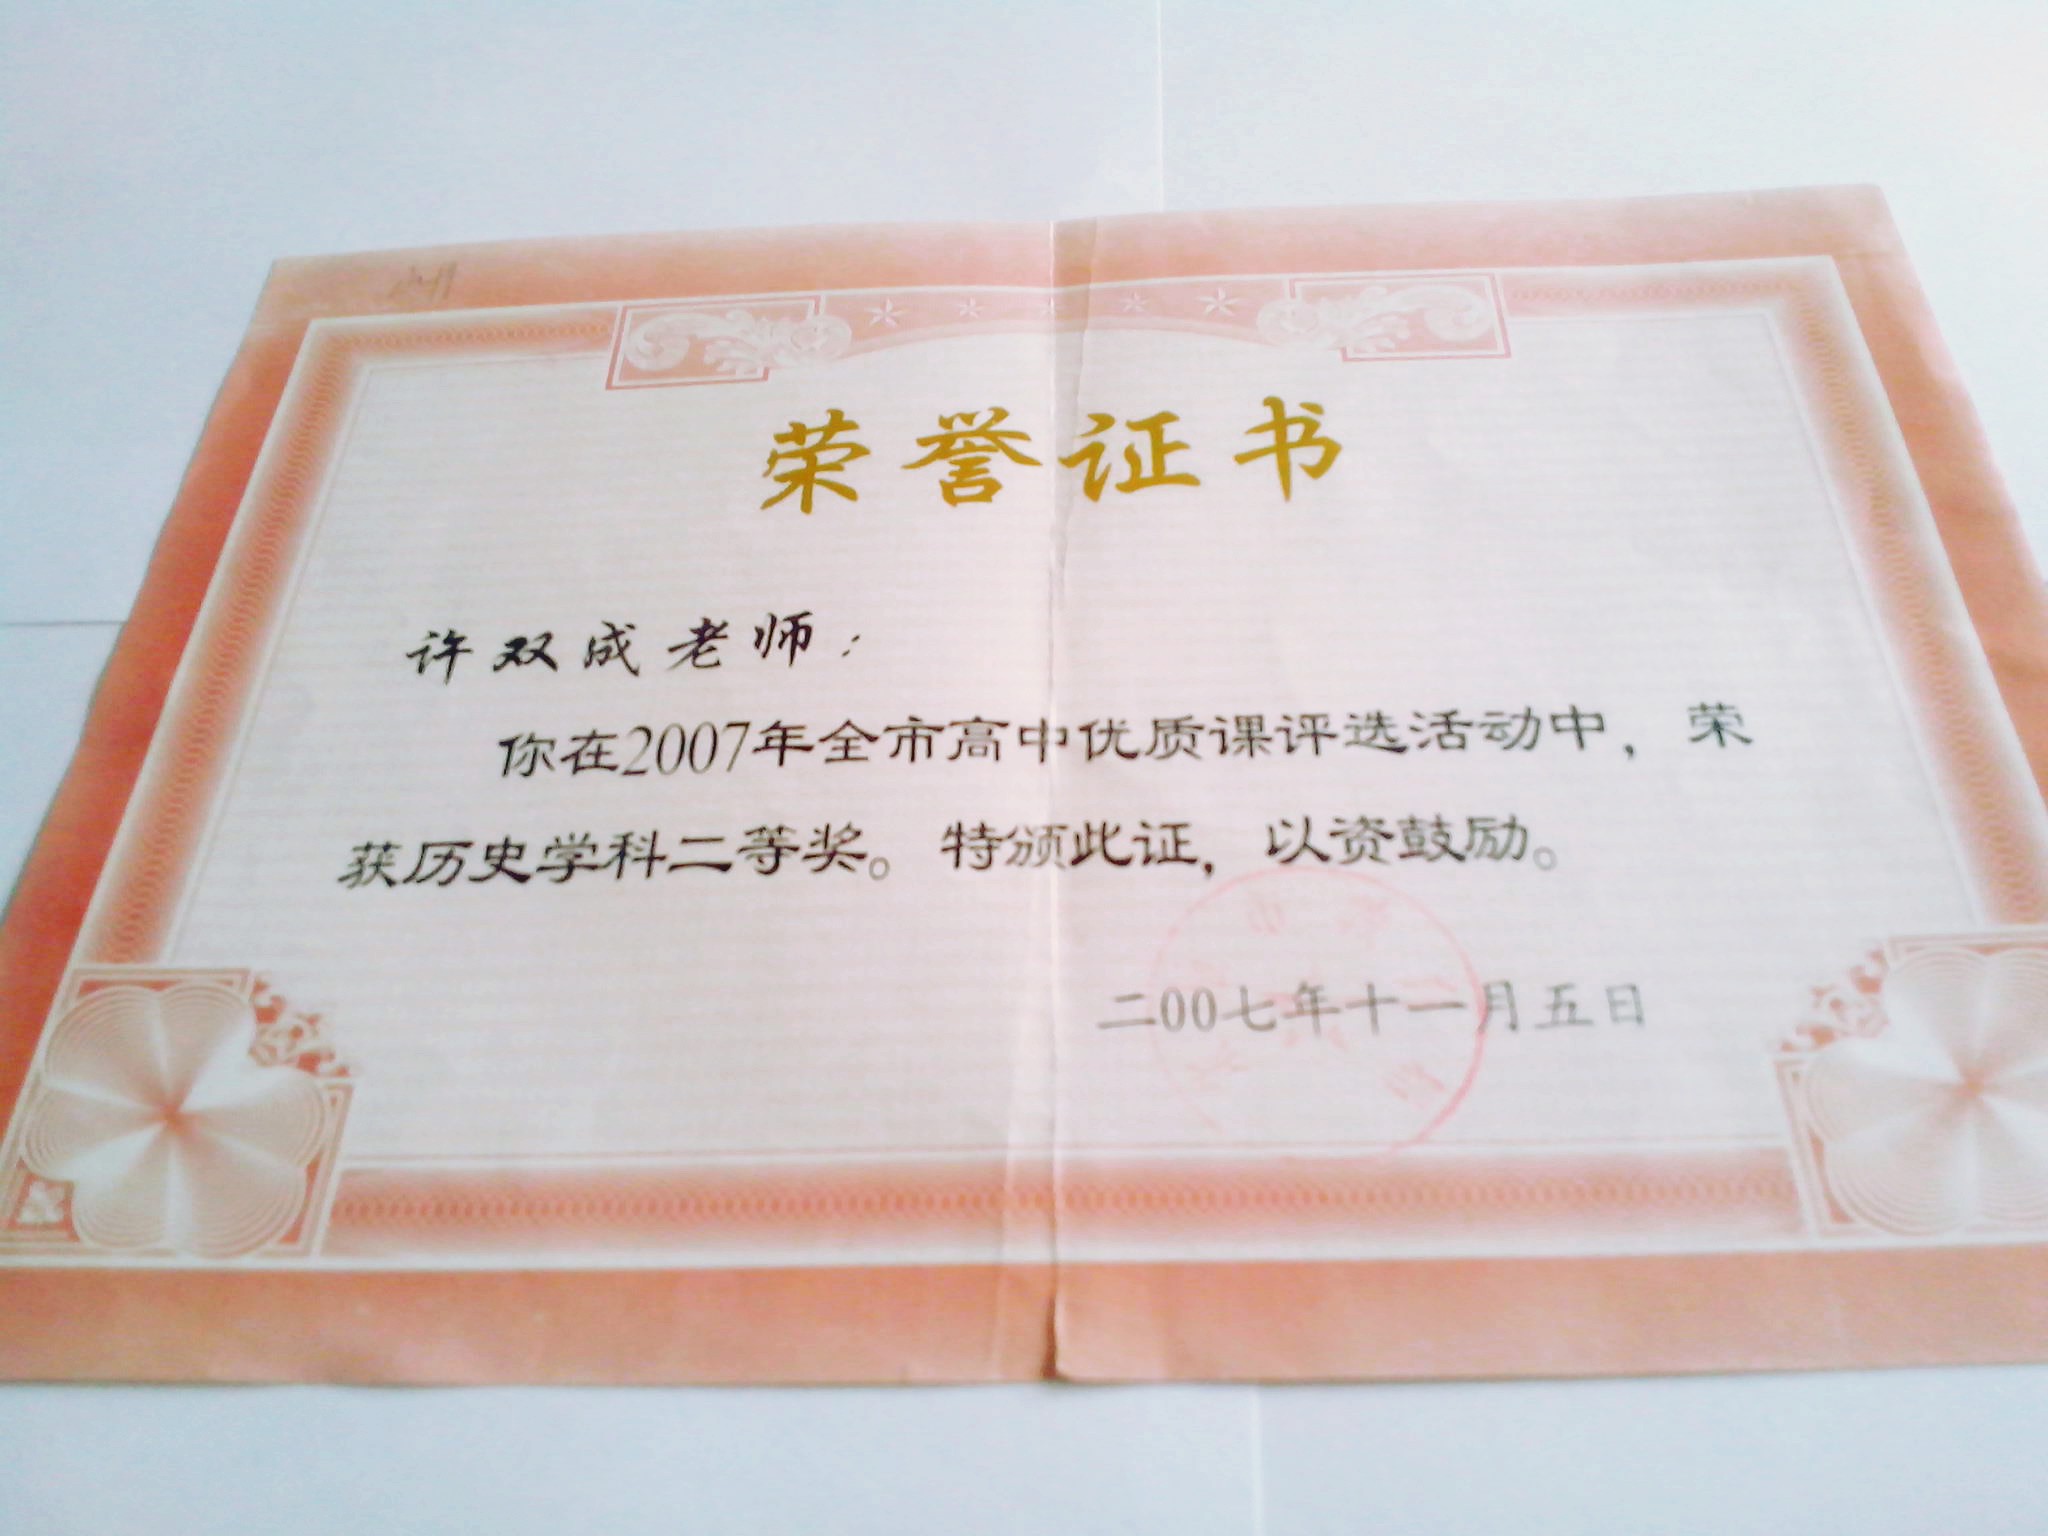 荣誉证书
许双成老师：
你在2007年全市高中优质课评选活动中，荣
获历史学科二等奖。特颁此证，以资鼓励。
二00七年十一月五日